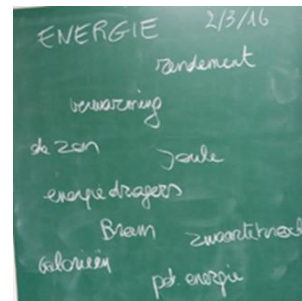 ENERGIE 2/3/16
rendement
verwarming
de zon
Joule
energiedragers
Bram zwaartekracht
Calorieën
pot. energie